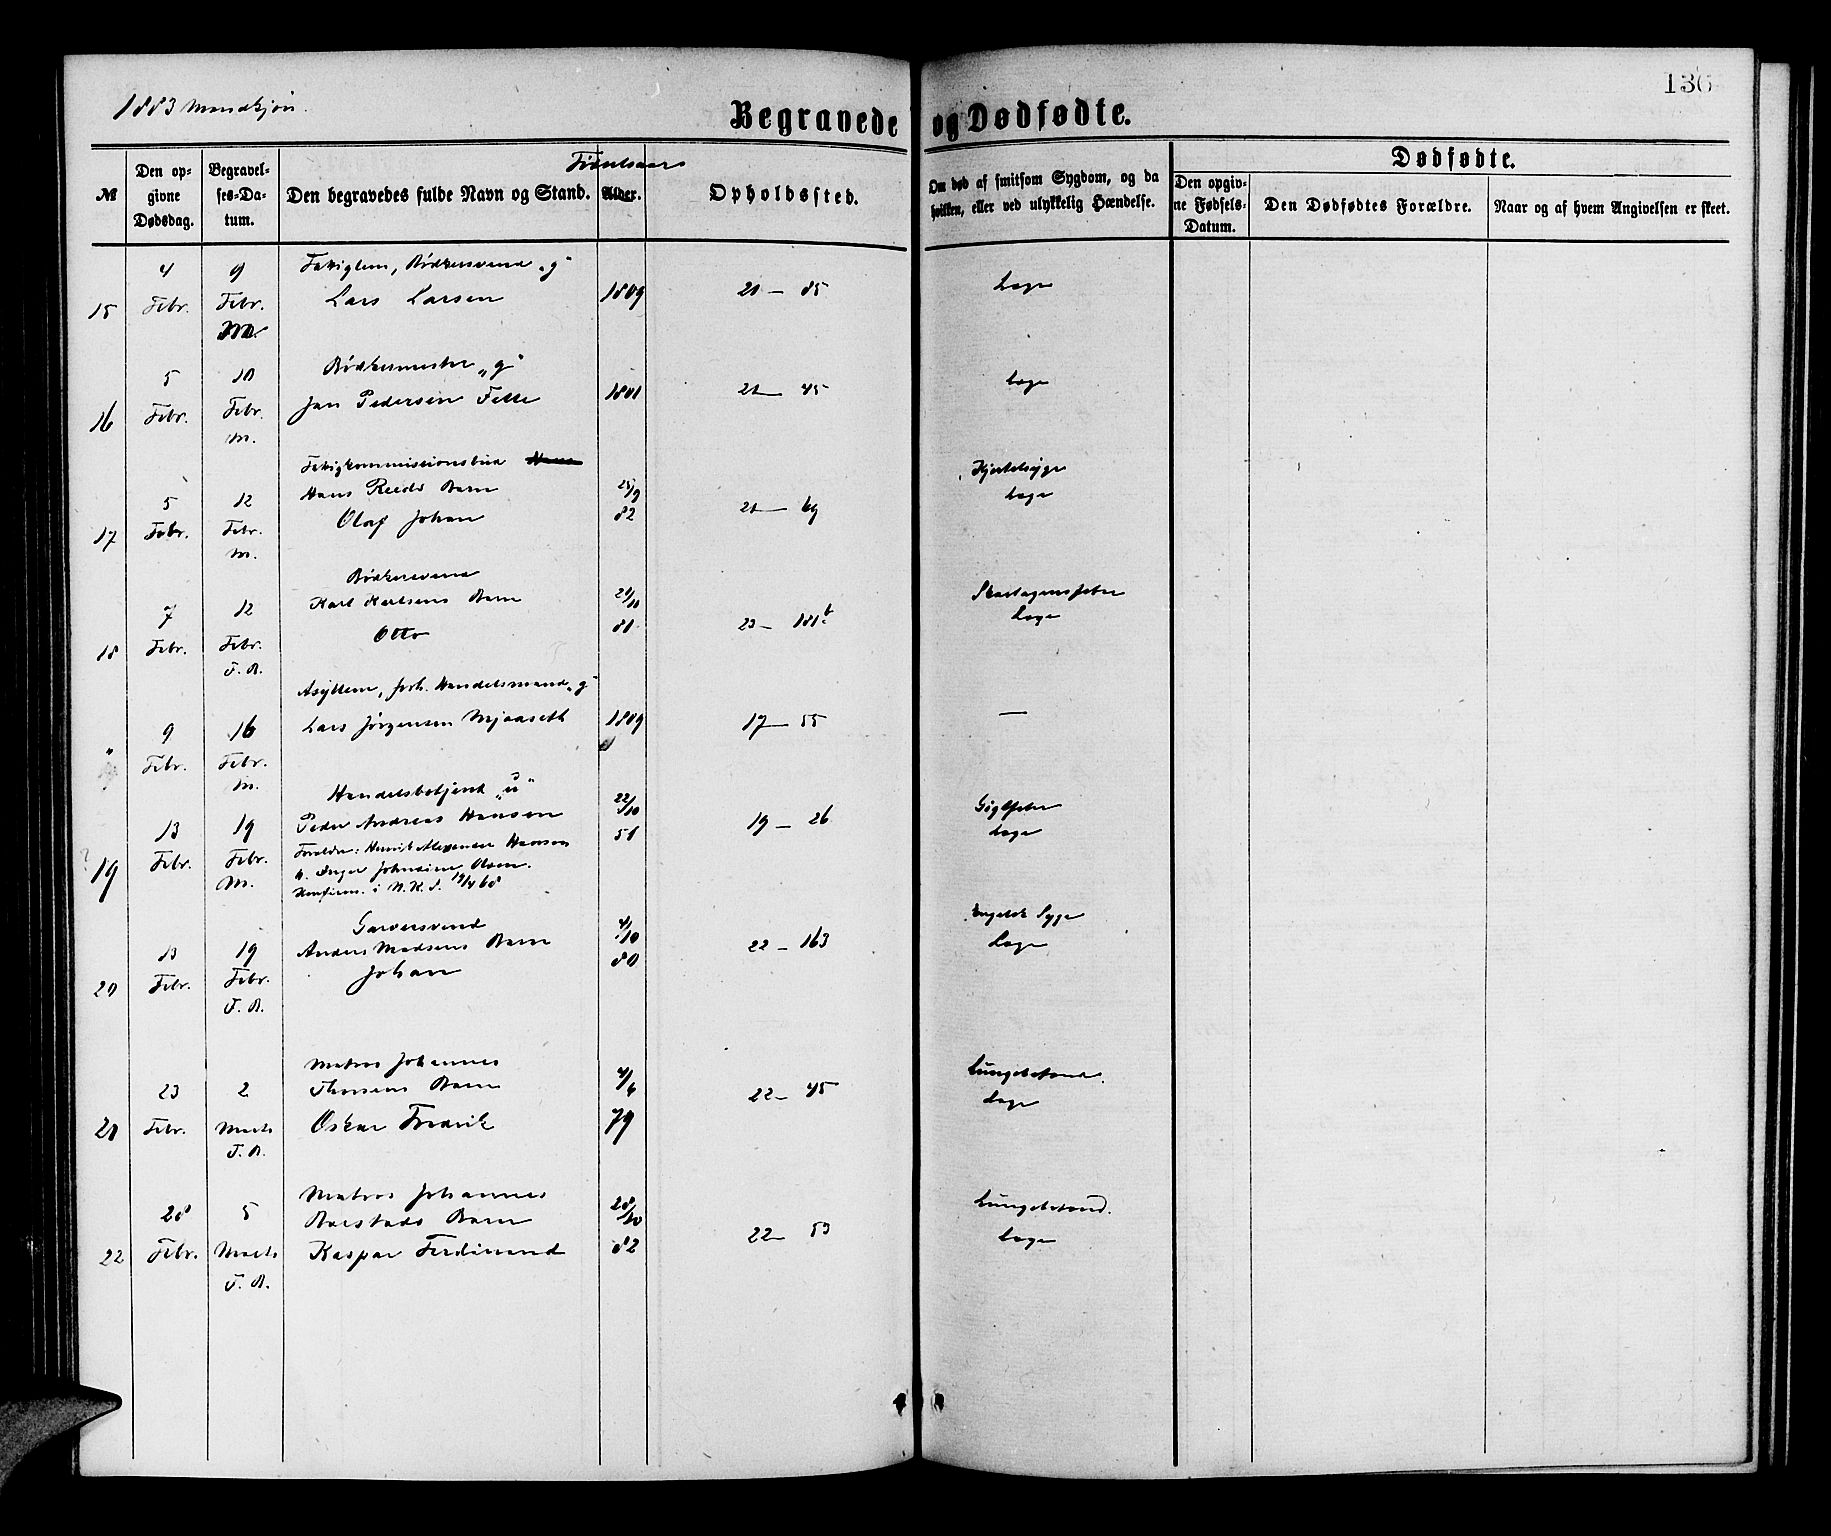 1883 Mandkjøn.
136
Begravede og Dødfødte.
№
Den opgivne Dødsdag.
Begravelses-Datum.
Den begravedes fulde Navn og Stand.
Fødselsaar
Alder.
Opholdssted.
Om død af smitsom Sygdom, og da hvilken, eller ved ulykkelig Hændelse.
Dødfødte.
Den opgivne Fødsels-Datum.
Den Dødfødtes Forældre.
Naar og af hvem Angivelsen er skeet.
Fattiglem, Bødkersvend „g"
15 4 Febr. 9 Febr. M. Lars Larsen 1809 21 — 85 Læge
Bødkermester „g"
16 5 Febr. 10 Febr. M. Jan Pedersen Fette 1801 21 — 45 Læge
Fattigkommissionsbud
Hans Reeds Barn 25/9 Kjertelsyge
17 5 Febr. 12 Febr. M. Olaf Johan 82 21 — 69 Læge
Bødkersvend
Karl Karlsens Barn 21/10 Skarlagensfeber
18 7 Febr. 12 Febr. F. A. Otto 81 23 — 181 b Læge
Asyllem, forh. Handelsmand „g"
" 9 Febr. 16 Febr. M. Lars Jørgensen Mjaaseth 1809 17 — 55 —
Handelsbetjent „u"
Peder Andreas Hansen 22/10 Gigtfeber
19 13 Febr. 19 Febr. M. 51 19 — 26 Læge
Forældre: Henrik Alexander Hanson
o. Inger Johnsine Olsen.
Konfirm. i N. K. d. 19/4 68
Garversvend
Anders Madsens Barn 4/10 Engelsk Syge
20 13 Febr. 19 Febr. F. A. Johan 80 22 — 163 Læge
Matros Johannes
Thorsens Barn 4/6 Lungebetænd.
21 23 Febr. 2 Marts F. A. Oskar Fredrik 79 22 — 45 Læge
Matros Johannes
Barstads Barn 28/10 Lungebetænd.
22 28 Febr. 5 Marts F. A. Kaspar Ferdinand 82 22 — 53 Læge